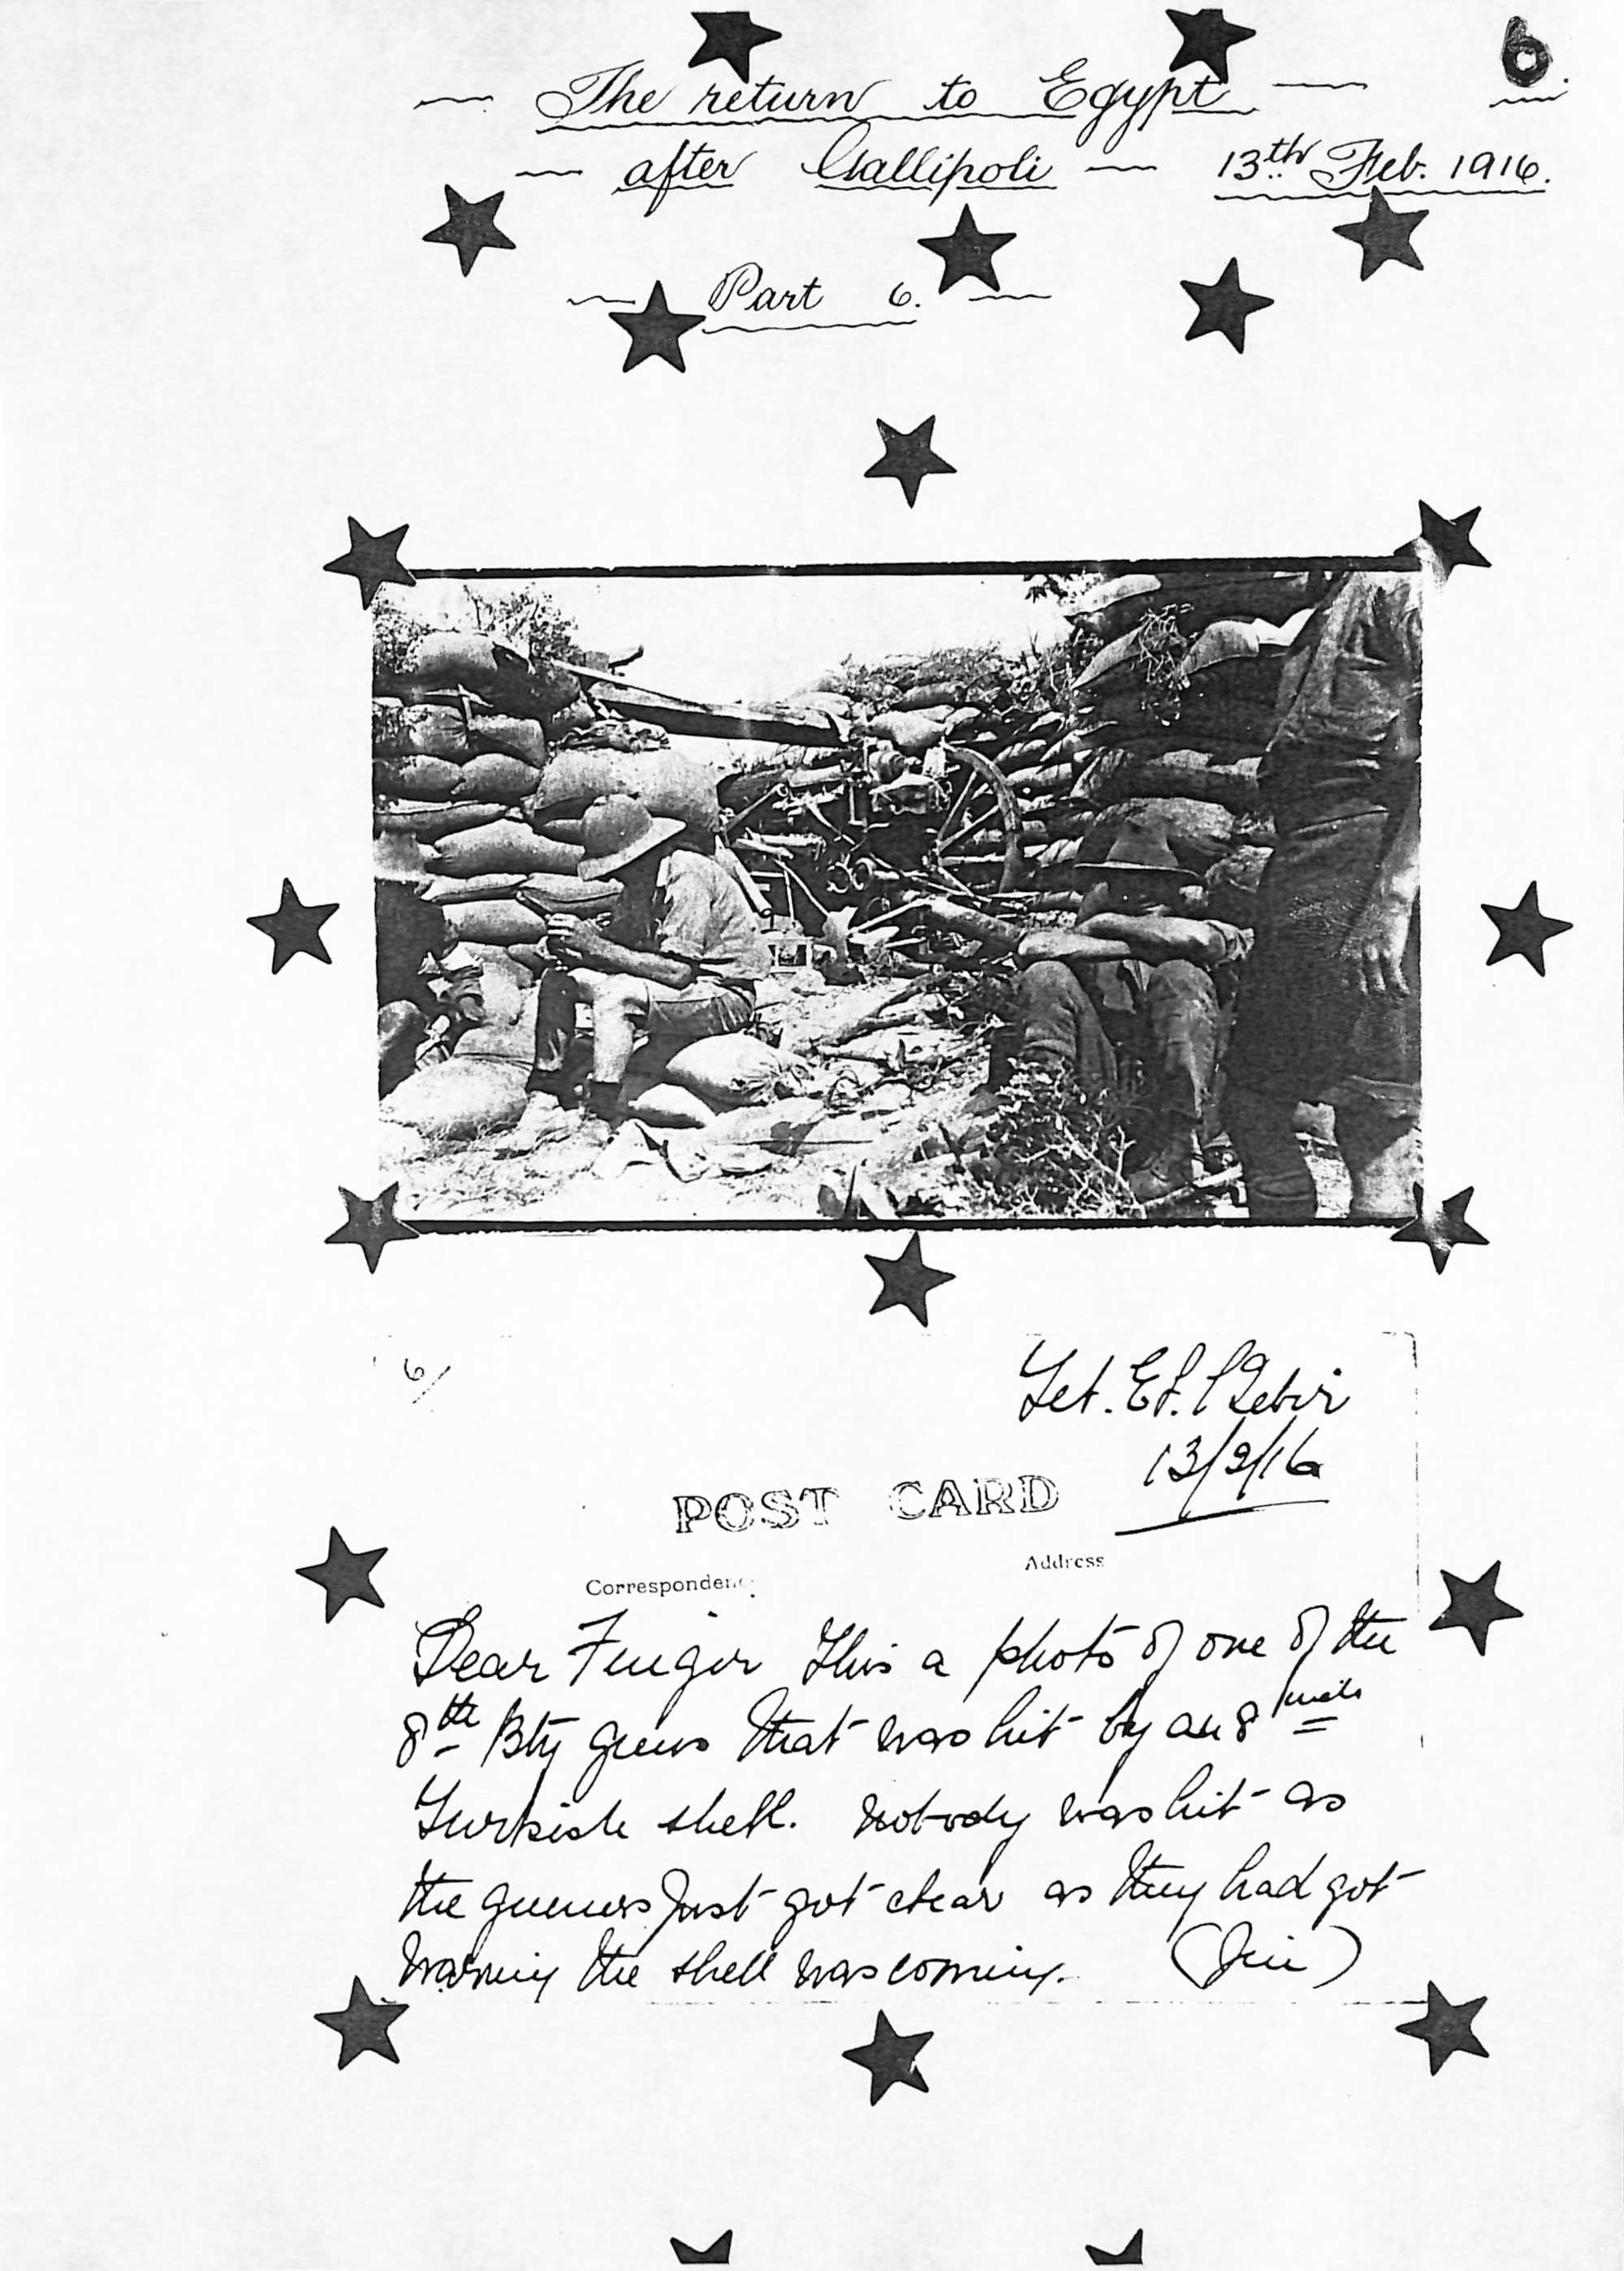 6.
The return to Egypt
after Gallipoli — 13th Feb. 1916.
Part 6.
6/
Tel. El. Kebir
13/2/16
POST CARD
Address
Correspondence
Dear Finger This a photo of one of the
8th Bty guns that was hit by an 8 inch
Turkish shell. Nobody was hit as
the gunners just got clear as they had got
warning the shell was coming. (Jim)